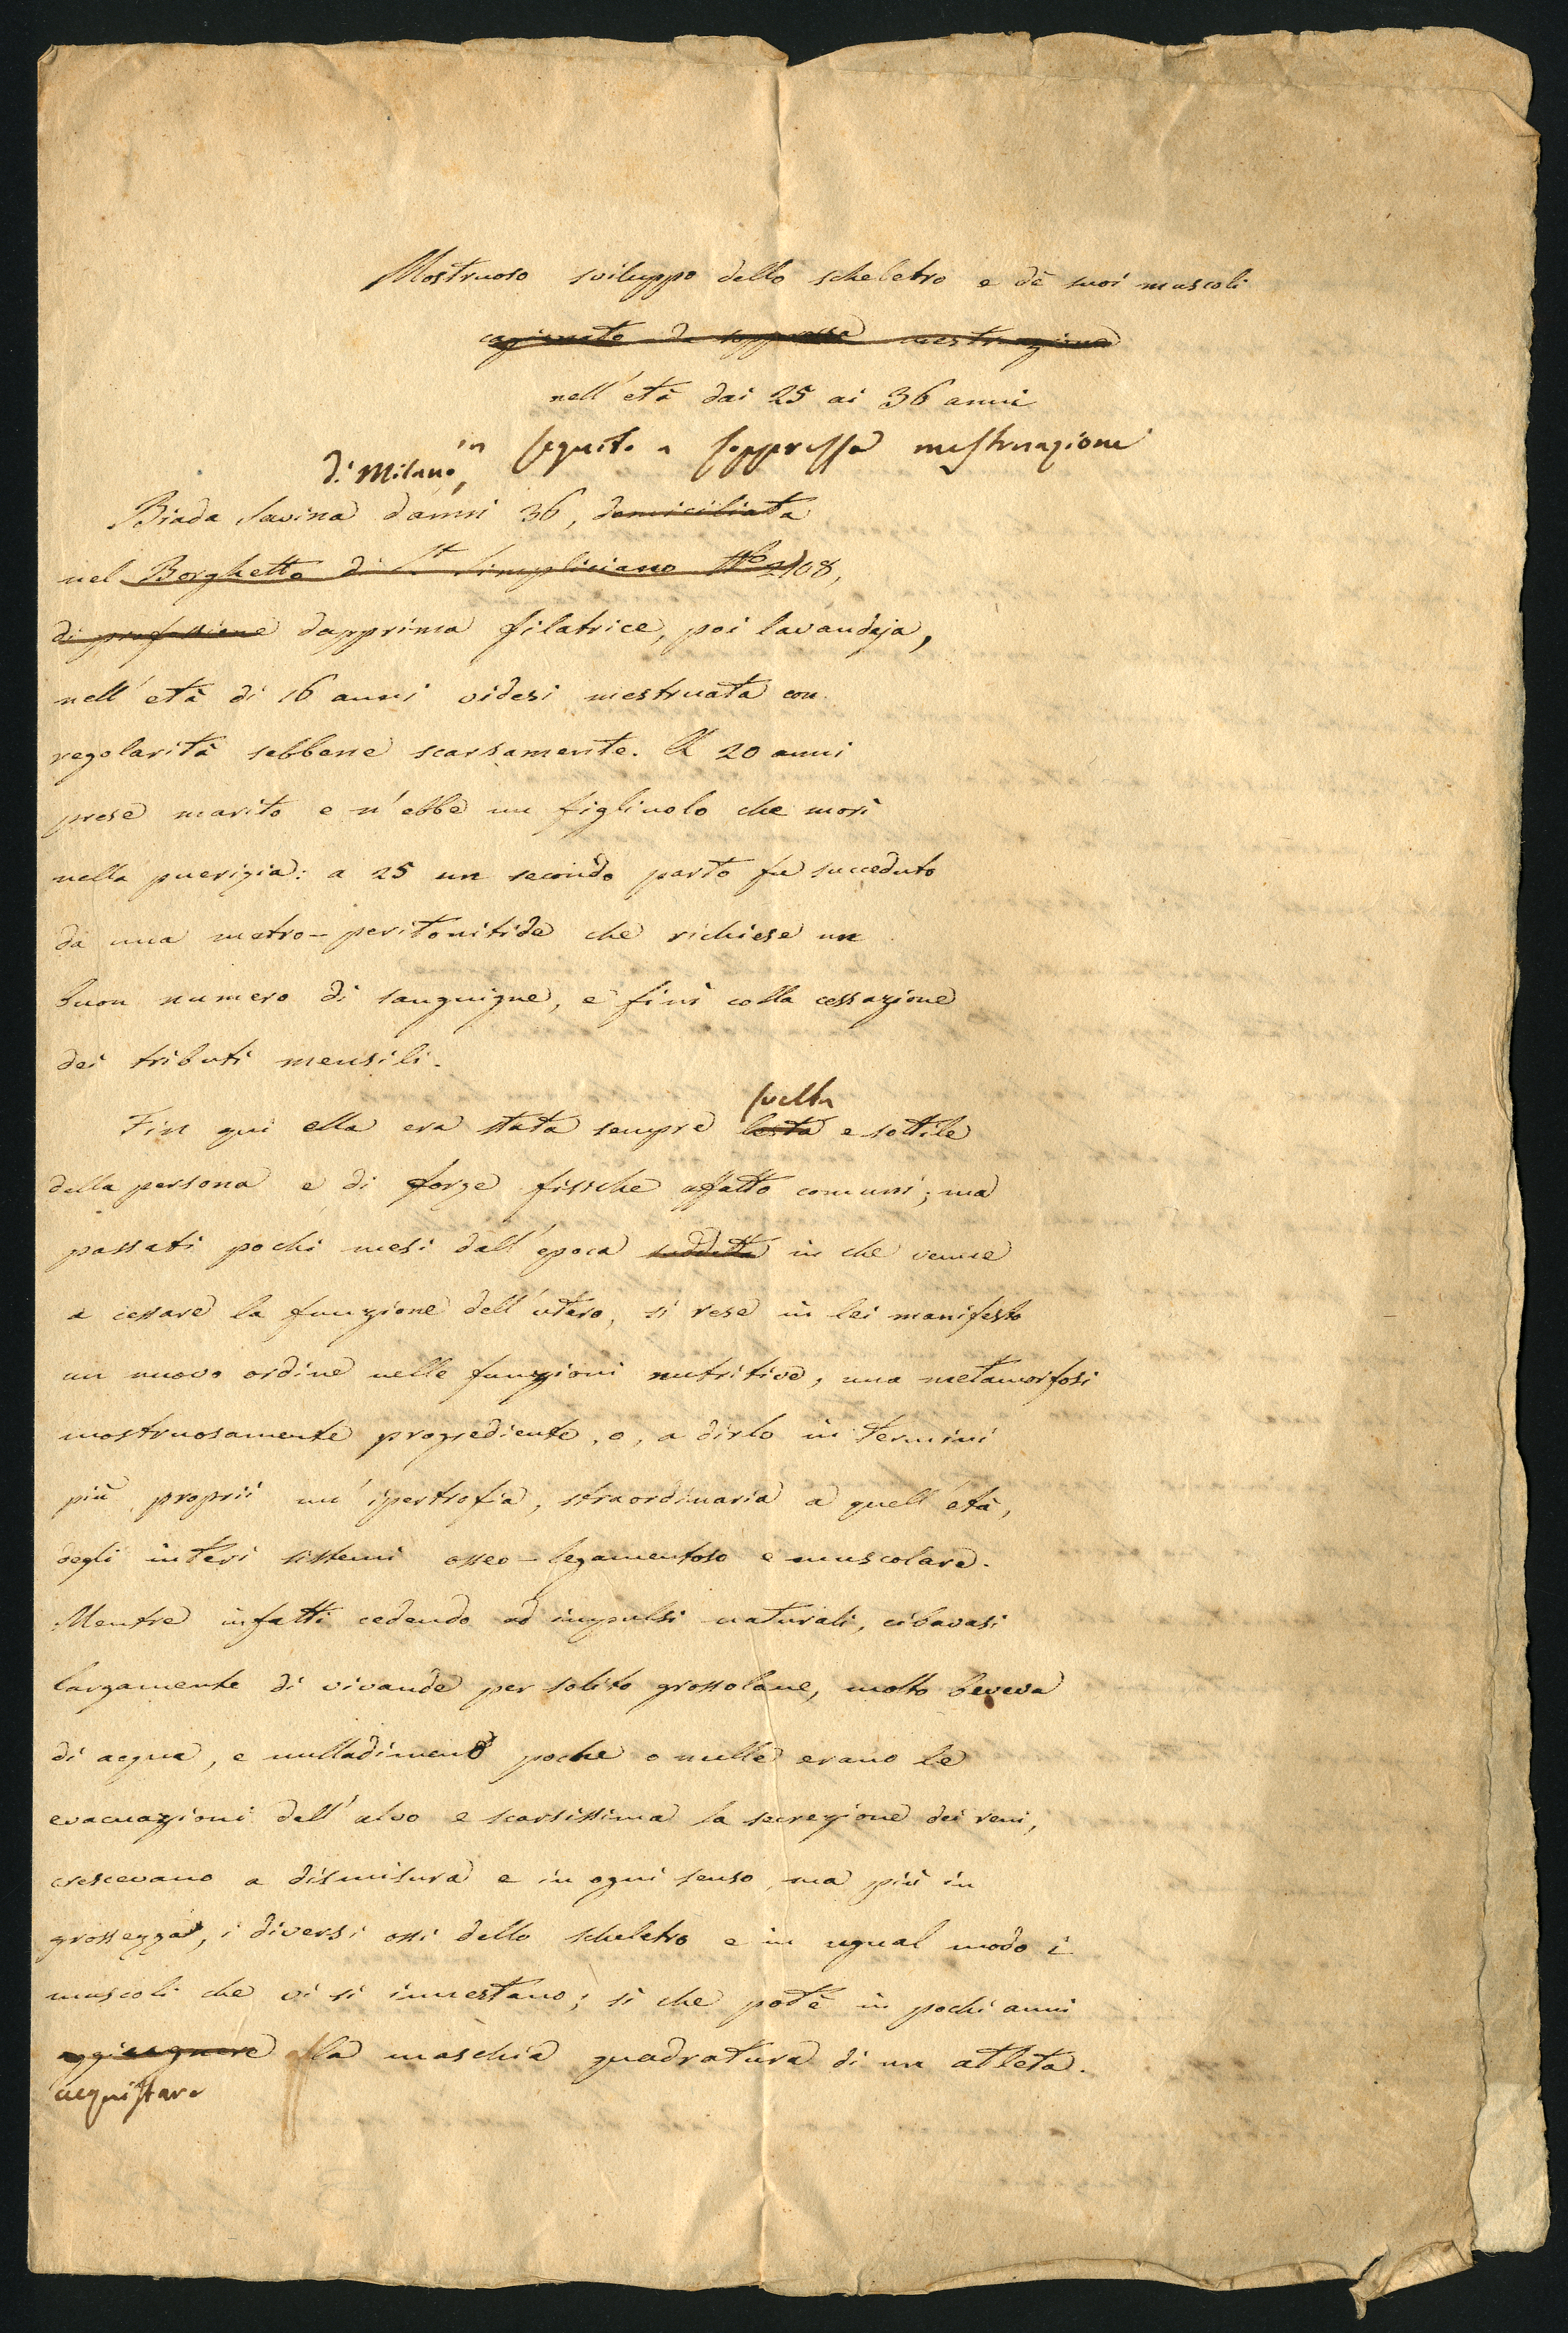 Mostruoso sviluppo dello scheletro e de' suoi muscoli
cagionato da soppressa mestruazione
nell'età dai 25 ai 36 anni
in seguito a soppressa mestruazione
di Milano,
Biada Savina d'anni 36, domiciliata
nel Borghetto di St Simpliciano No 2108,
di professione dapprima filatrice, poi lavandaja,
nell'età di 16 anni videsi mestruata con
regolarità sebbene scarsamente. A 20 anni
prese marito e n'ebbe un figliuolo che morì
nella puerizia: a 25 un secondo parto fu succeduto
da una metro-peritonitide che richiese un
buon numero di sanguigne, e finì colla cessazione
dei tributi mensili.
svelta
Fin qui ella era stata sempre lesta e sottile
della persona e di forze fisiche affatto comuni; ma
passati pochi mesi dall'epoca suddetta in che venne
a cessare la funzione dell'utero, si rese in lei manifesto
un nuovo ordine nelle funzioni nutritive, una metamorfosi
mostruosamente progrediente, o, a dirlo in termini
più proprii un'ipertrofia, straordinaria a quell'età,
degli interi sistemi osseo-legamentoso e muscolare.
Mentre infatti cedendo ad impulsi naturali, cibavasi
largamente di vivande per solito grossolane, molto beveva
di acqua, e nulladimeno poche o nulle erano le
evacuazioni dell'alvo e scarsissima la secrezione dei reni,
crescevano a dismisura e in ogni senso, ma più in
grossezza, i diversi ossi dello scheletro e in ugual modo i
muscoli che vi si innestano; sì che potè in pochi anni
aggiugnere alla maschia quadratura di un atleta.
acquistare